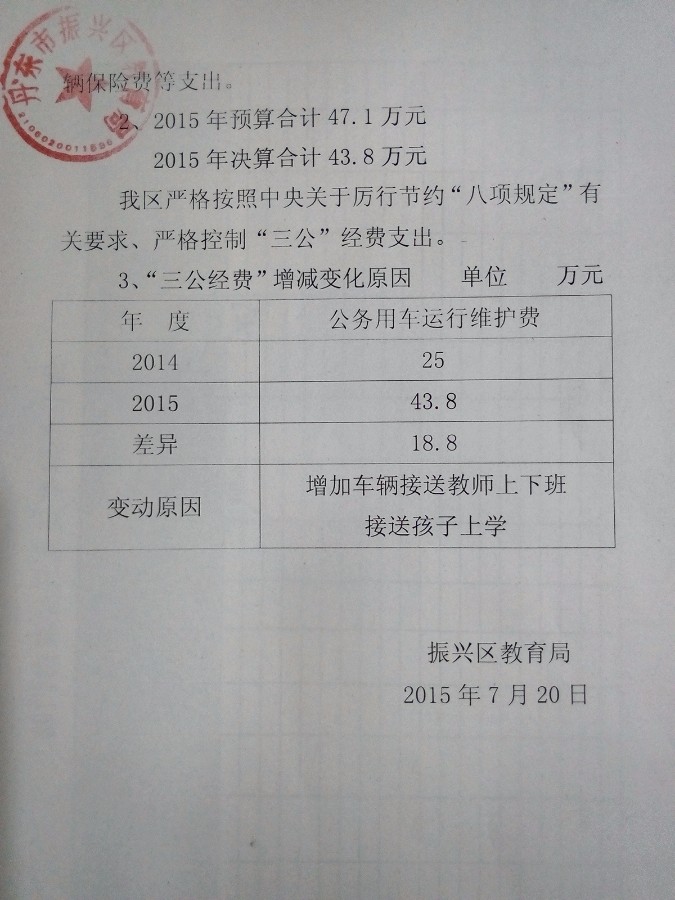 丹东市振兴区教育局
辆保险费等支出。
2、2015年预算合计47.1万元
2015年决算合计43.8万元
我区严格按照中央关于厉行节约“八项规定”有
关要求、严格控制“三公”经费支出。
3、“三公经费”增减变化原因 单位 万元
年 度 公务用车运行维护费
2014 25
2015 43.8
差异 18.8
变动原因 增加车辆接送教师上下班
接送孩子上学
振兴区教育局
2015年7月20日